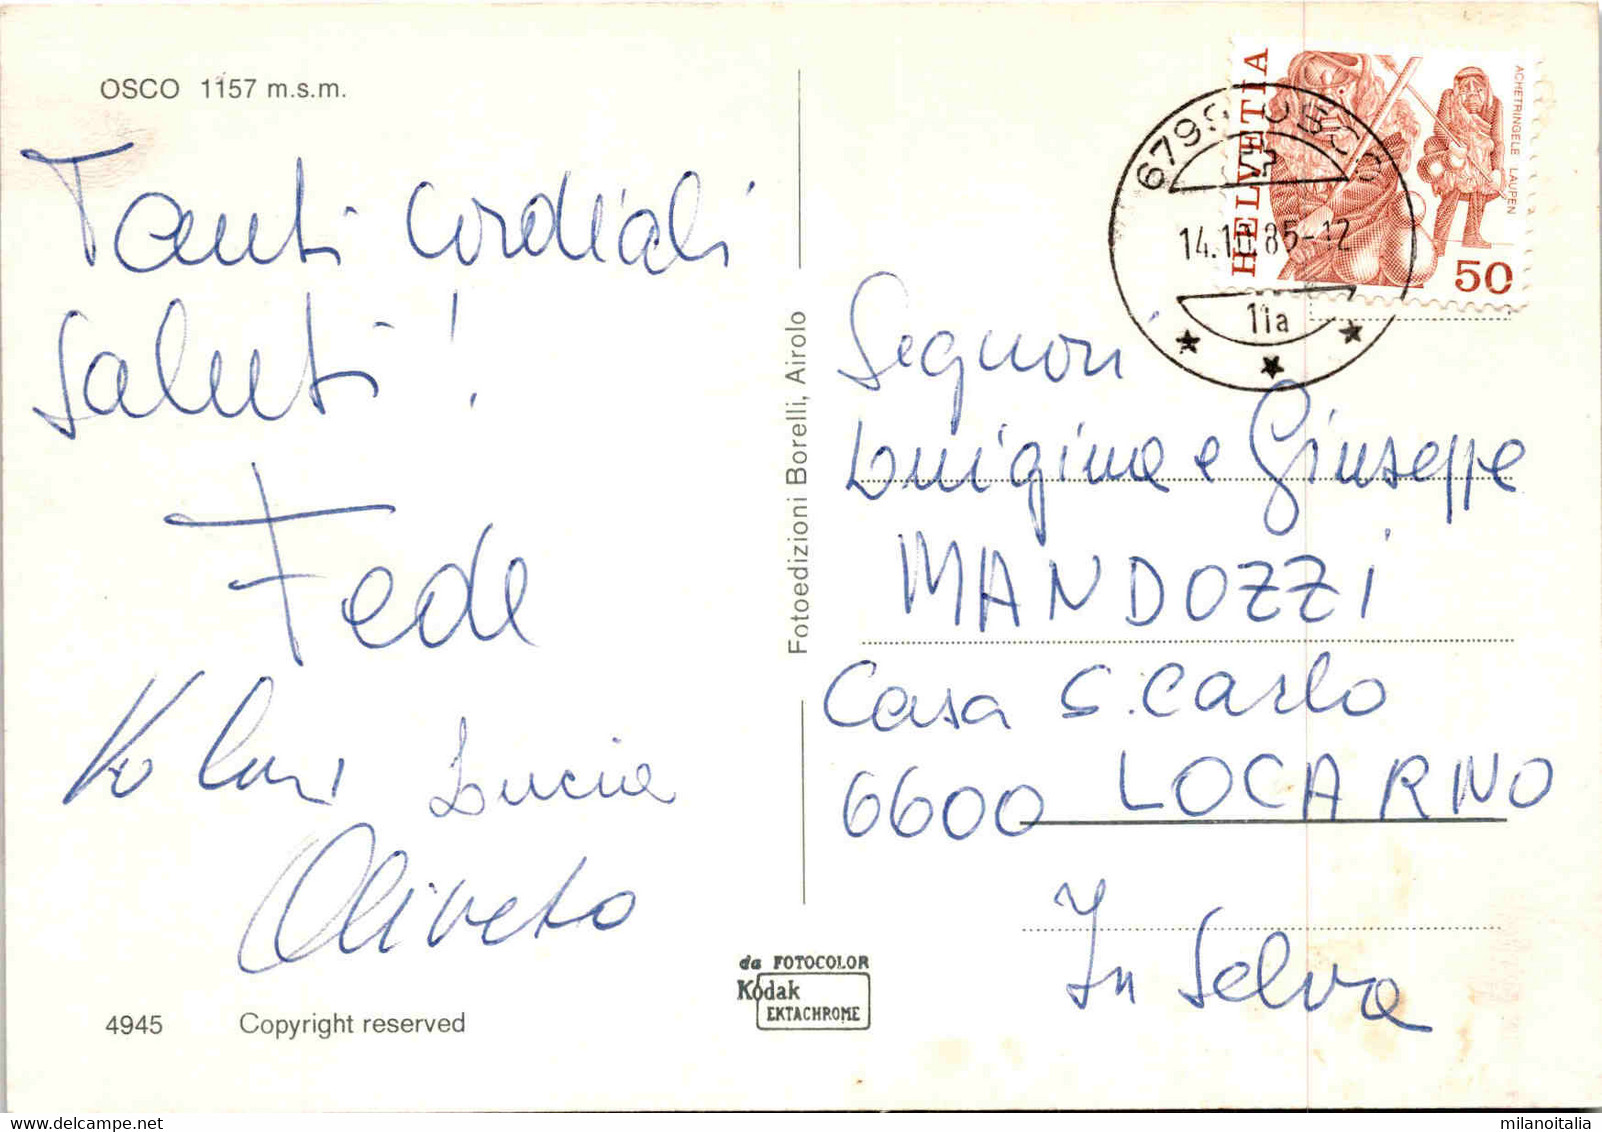 OSCO 1157 m.s.m.
Tanti cordiali
saluti !
Fede
Lucia
Oliveto
4945 Copyright reserved
Fotoedizioni Borelli, Airolo
da FOTOCOLOR
Kodak
EKTACHROME
HELVETIA
ACHETRINGELE LAUPEN
50
OSCO
14.10.85-12
11a
Segnori
Luigina e Giuseppe
MANDOZZI
Casa S. Carlo
6600 LOCARNO
In Selva
milanoitalia